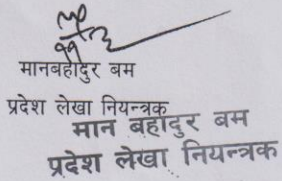 मानबहादुर बम
प्रदेश लेखा नियन्त्रक
मान बहादुर बम
प्रदेश लेखा नियन्त्रक